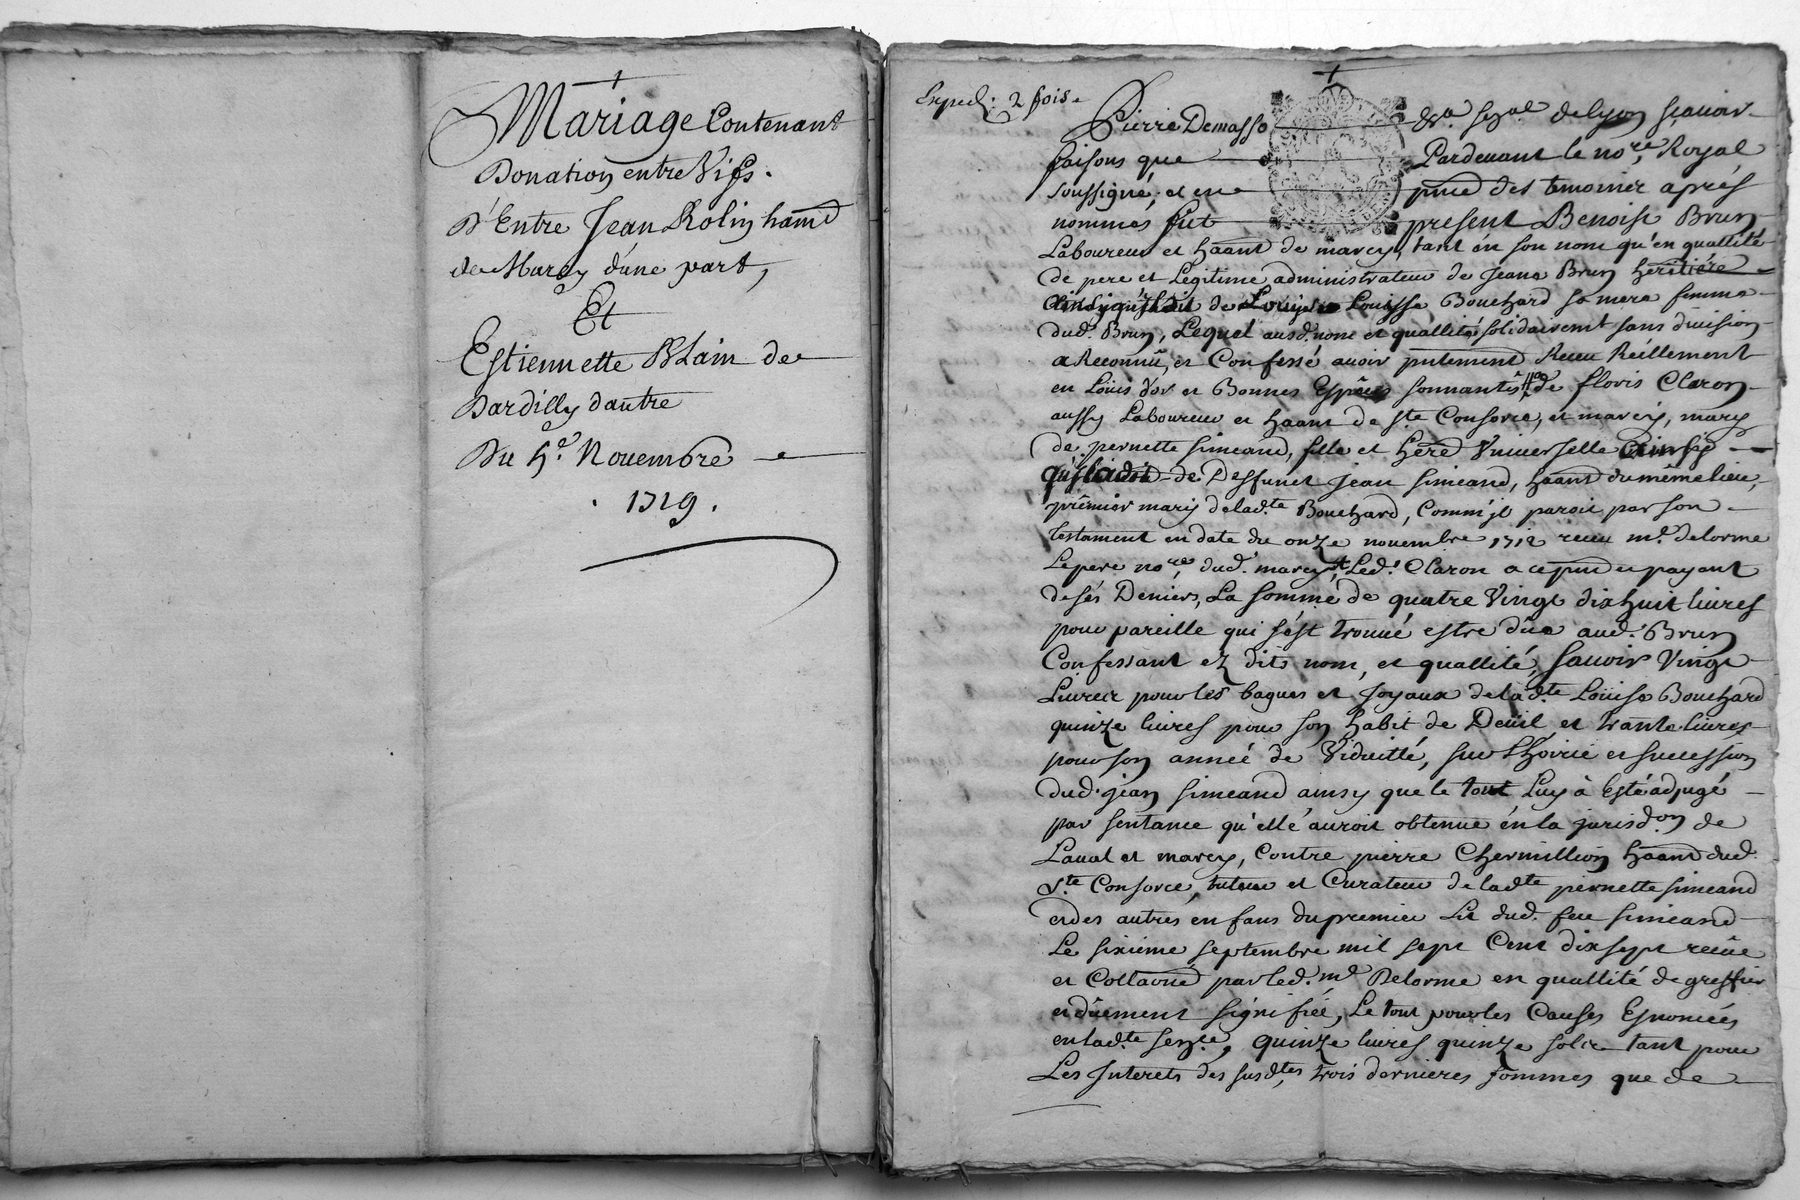 Mariage Contenant
Donation entre Vifs.
D'Entre Jean Rolin hand
de Marcy d'une part,
Et
Estiennette Blain de
Dardilly d'autre
Du 4e. Novembre
1719.
Exped. 2 fois.
Pierre Demasso Sgal de Lyon scavoir
faisons que Pardevant le nore. Royal
soussigné, et en pnce des temoins aprés
nommés fut present Benoist Brun
Laboureur et haant de marcy, tant én son nom qu'en quallité
de pere et Legitime administrateur de Jeane Brun heritiére
de Louisse Bouchard sa mere femme
dud. Brun, Lequel ausd. nom et quallité solidairemt sans division
a Reconnû, et Confessé avoir pntement Receu Reéllement
en Loüis d'or et Bonnes Espêces sonnantes de floris Claron
aussy Laboureur et haant de Ste Consorce, et marcy, mary
de pernette simeand, fille et héred Vniverselle Ainsy
qu'il a dit de Deffunct jean simeand, haant du même lieu,
prêmier mary de ladte Bouchard, Comm'jl paroit par son
testament en date du onze novembre 1712 receu me. delorme
Le pere nore. dud. marcy, Led. Claron a ce pnt et payant
de sés Deniers, La somme de quatre Vingt dix huit livres
pour pareille qui s'ést trouvé estre dûe aud. Brun
Confessant éz dits nom, et quallité, savoir Vingt
Livres pour les bagues et Joyaux de ladte Loüise Bouchard
quinze livres pour son habit de Deüil et trante livres
pour son anneé de Viduitté, sur l'hoirie et succession
dud. jean simeand ainsy que le tout Luy à Esté adjugé
par sentance qu'elle auroit obtenue én la jurisdon de
Laval et marcy, Contre pierre Chermillion haant dud.
Ste Consorce, tuteur et Curateur de ladte pernette simeand
et des autres enfans du premier Lit dud. feu simeand
Le sixiéme septembre mil sept Cent dix sept receüe
et Collaonné par led. me Delorme en quallité de greffier
et dûement signifieé, Le tout pour les Causes Enonceés
en ladte senze, quinze livres quinze sols tant pour
Les Interets des susdtes trois dernieres sommes que de